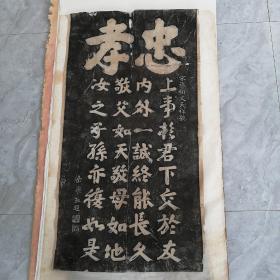 忠孝
宋丞相文天祥
上事於君下交於友
内外一誠終能長久
敬父如天敬母如地
汝之子孫亦復如是